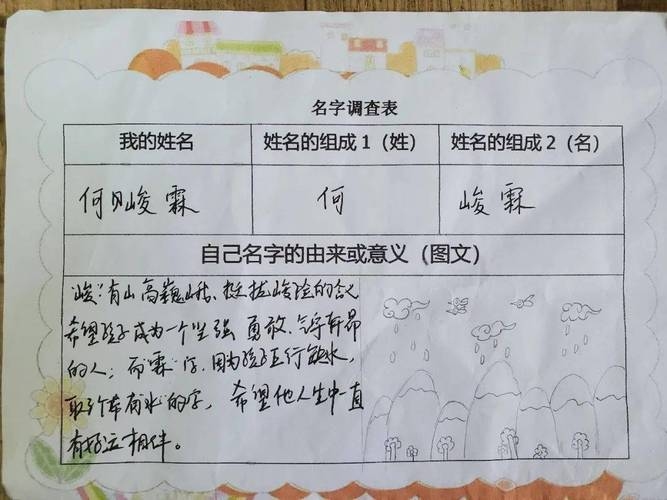 名字调查表
我的姓名 姓名的组成1（姓） 姓名的组成2（名）
何峻霖 何 峻霖
自己名字的由来或意义（图文）
"峻"：有山高巍峨、挺拔峻险的含义
希望孩子成为一个坚强 勇敢、气宇轩昂
的人；而"霖"字，因为孩子五行缺水，
取个带雨水的字， 希望他人生中一直
有好运相伴。